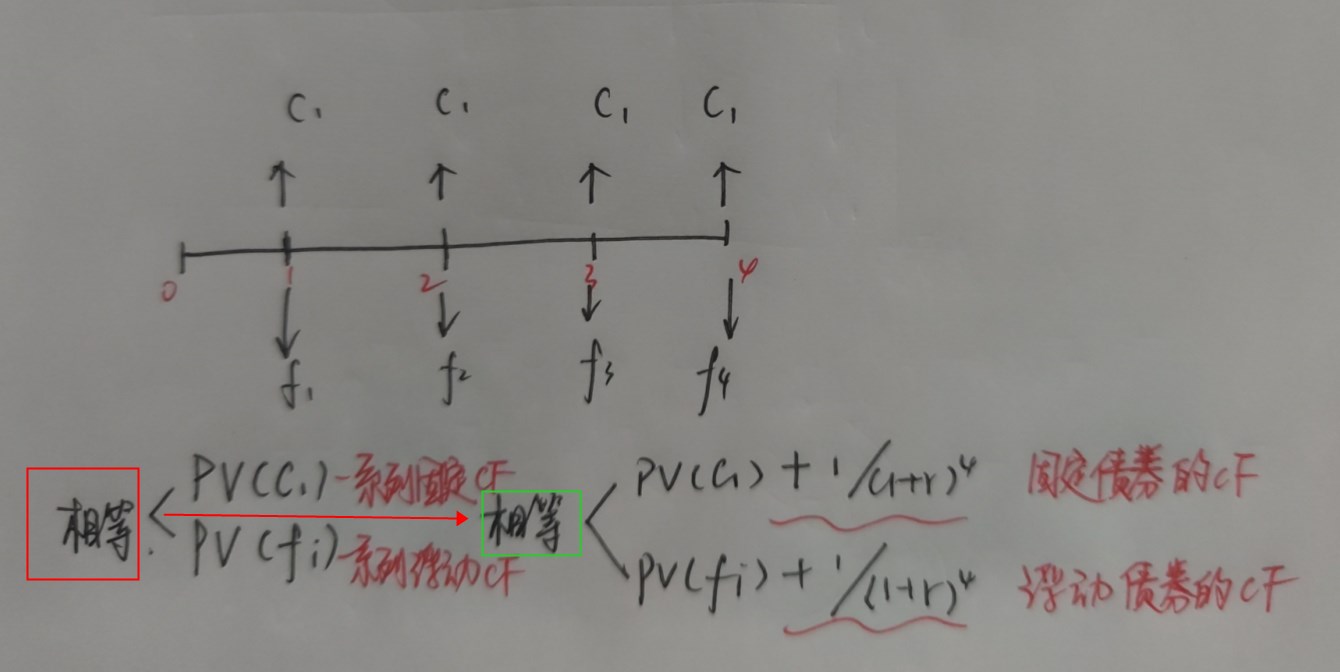 C₁ C₁ C₁ C₁
0 1 2 3 4
f₁ f₂ f₃ f₄
相等 PV(C₁) 一系列固定CF
PV(fi) 一系列浮动CF
相等 PV(C₁) + 1/(1+r)⁴ 固定债券的CF
PV(fi) + 1/(1+r)⁴ 浮动债券的CF